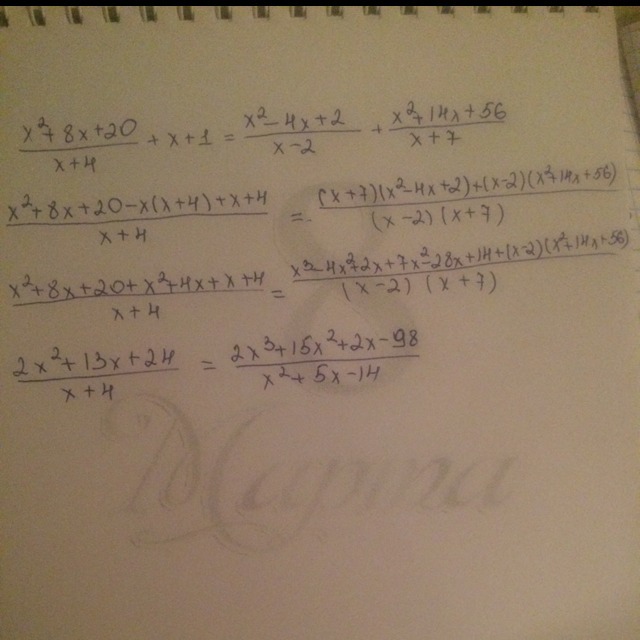 x²+8x+20/x+4 + x+1 = x²-4x+2/x-2 + x²+14x+56/x+7
x²+8x+20-x(x+4)+x+4/x+4 = (x+7)(x²-4x+2)+(x-2)(x²+14x+56)/(x-2)(x+7)
x²+8x+20+x²+4x+x+4/x+4 = x³-4x²+2x+7x²-28x+14+(x-2)(x²+14x+56)/(x-2)(x+7)
2x²+13x+24/x+4 = 2x³+15x²+2x-98/x²+5x-14
8
Марина